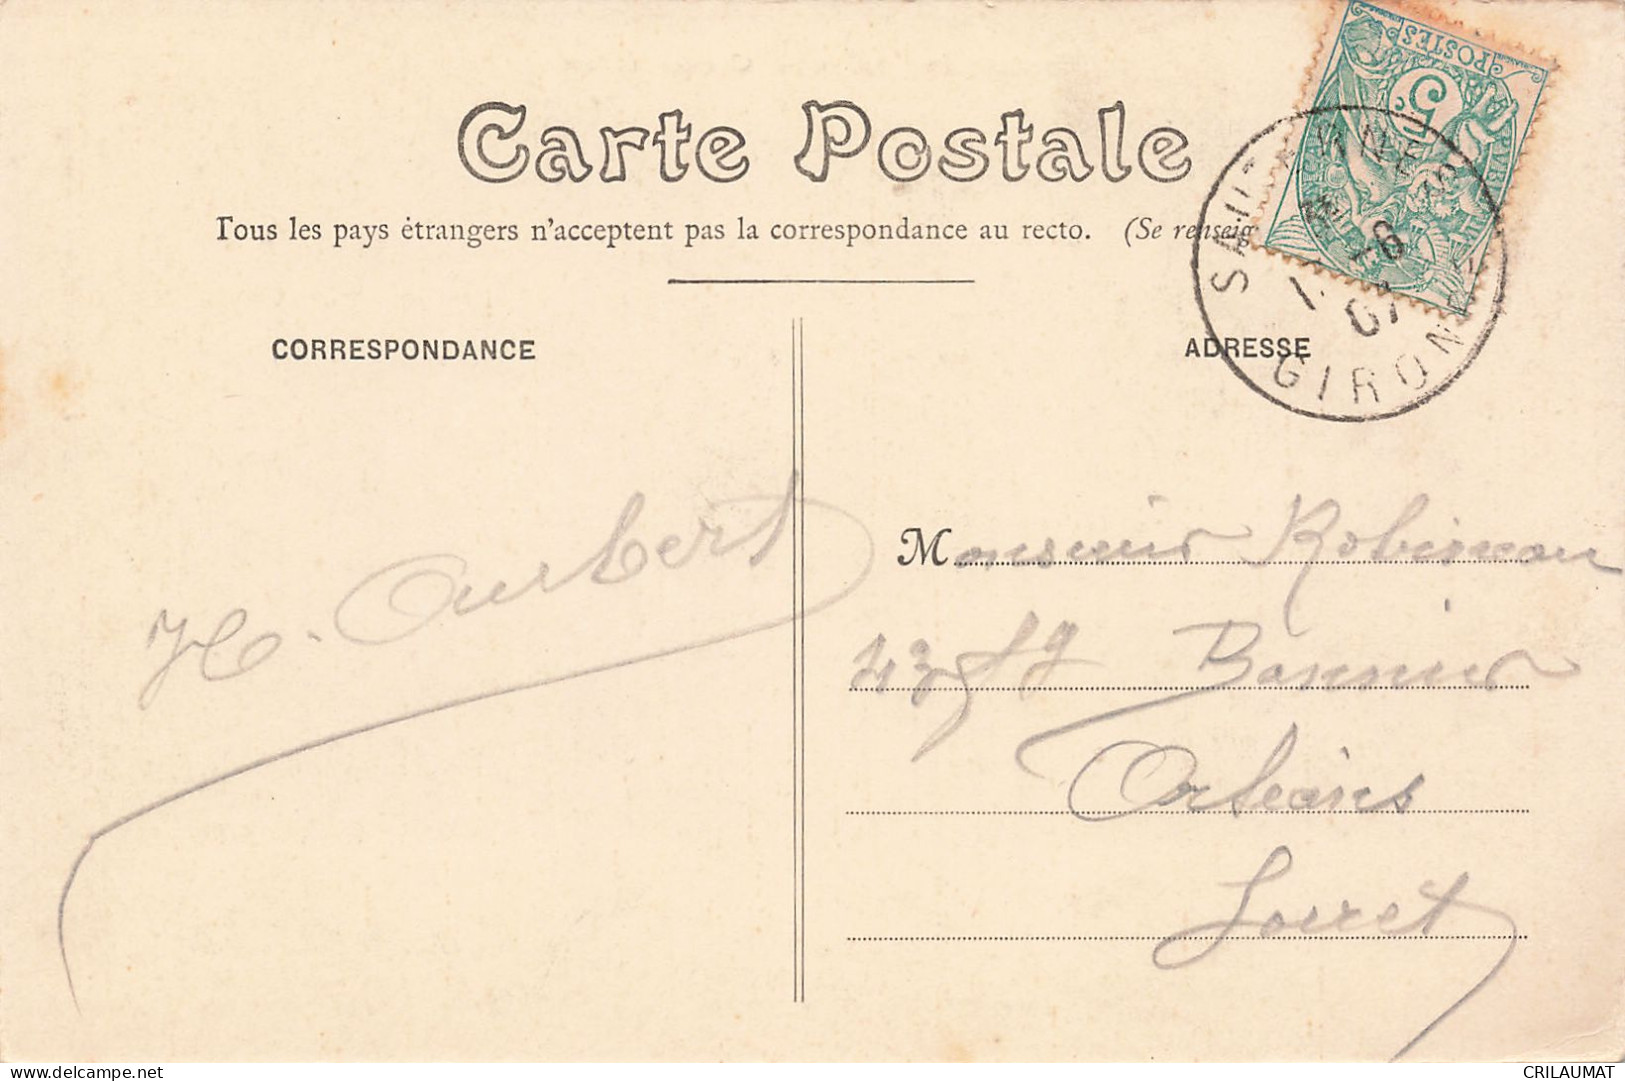 Carte Postale
Tous les pays étrangers n'acceptent pas la correspondance au recto. (Se renseig
CORRESPONDANCE
ADRESSE
POSTES
5
SAU
GIRON
6
07
H. Aubert
Monsieur Robineau
43 fg Bannier
Orléans
Loiret
delcampe.net
CRILAUMAT